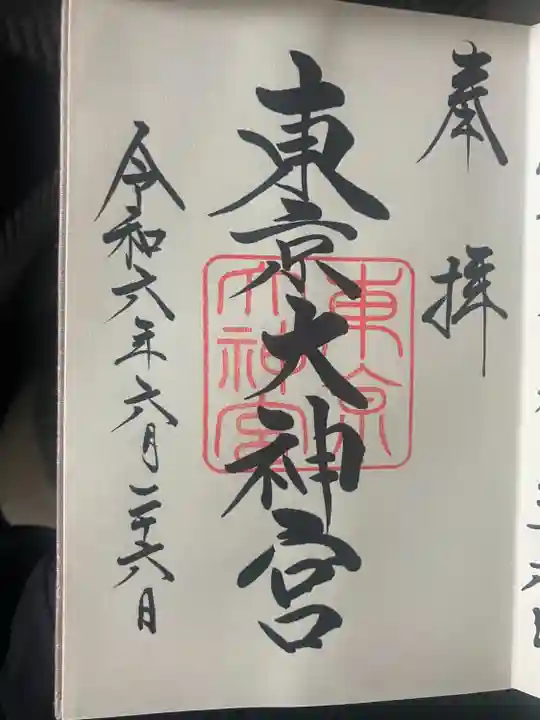 奉拝
東京大神宮
東京大神宮
令和六年六月二十六日